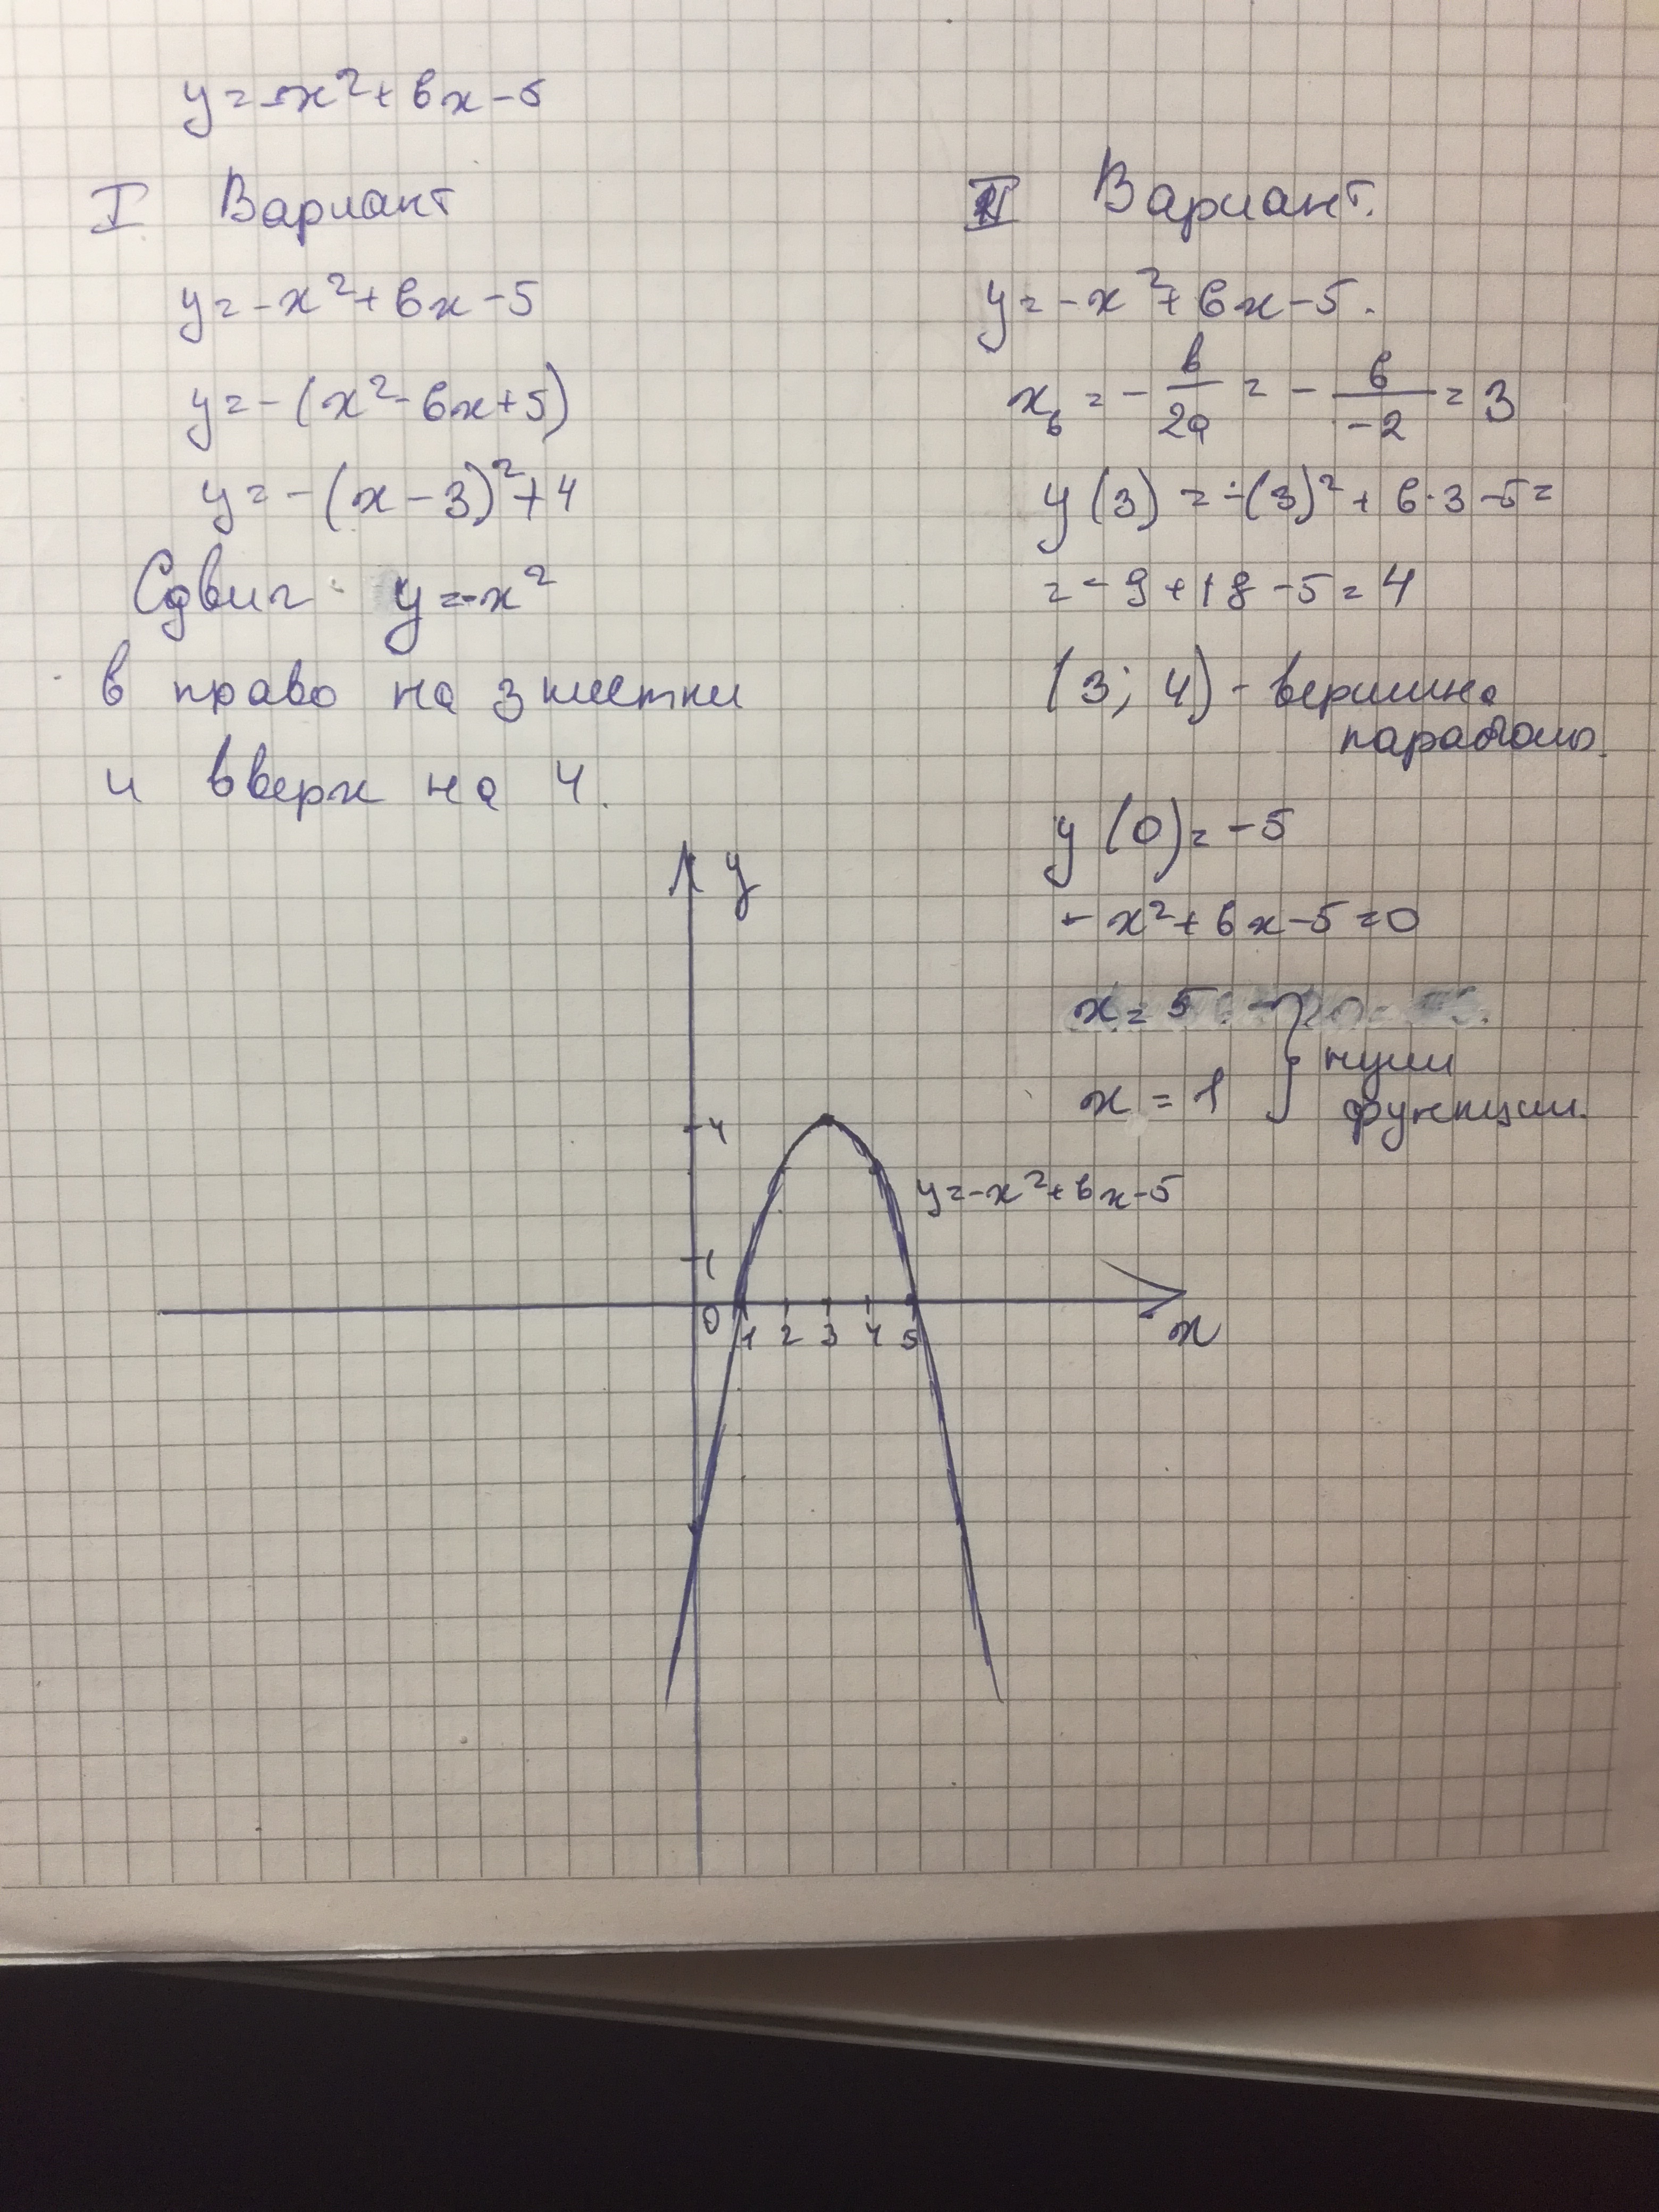 y=-x²+6x-5
I Вариант
y=-x²+6x-5
y=-(x²-6x+5)
y=-(x-3)²+4
Сдвиг y=-x²
в право на 3 клетки
и вверх на 4.
II Вариант.
y=-x²+6x-5.
xв = -b/2a = -6/-2 = 3
y(3) = -(3)²+6·3-5=
=-9+18-5=4
(3; 4) - вершина
параболы.
y(0)=-5
-x²+6x-5=0
x=5
x=1 } нули
функции.
y
4
y=-x²+6x-5
1
0 1 2 3 4 5
x